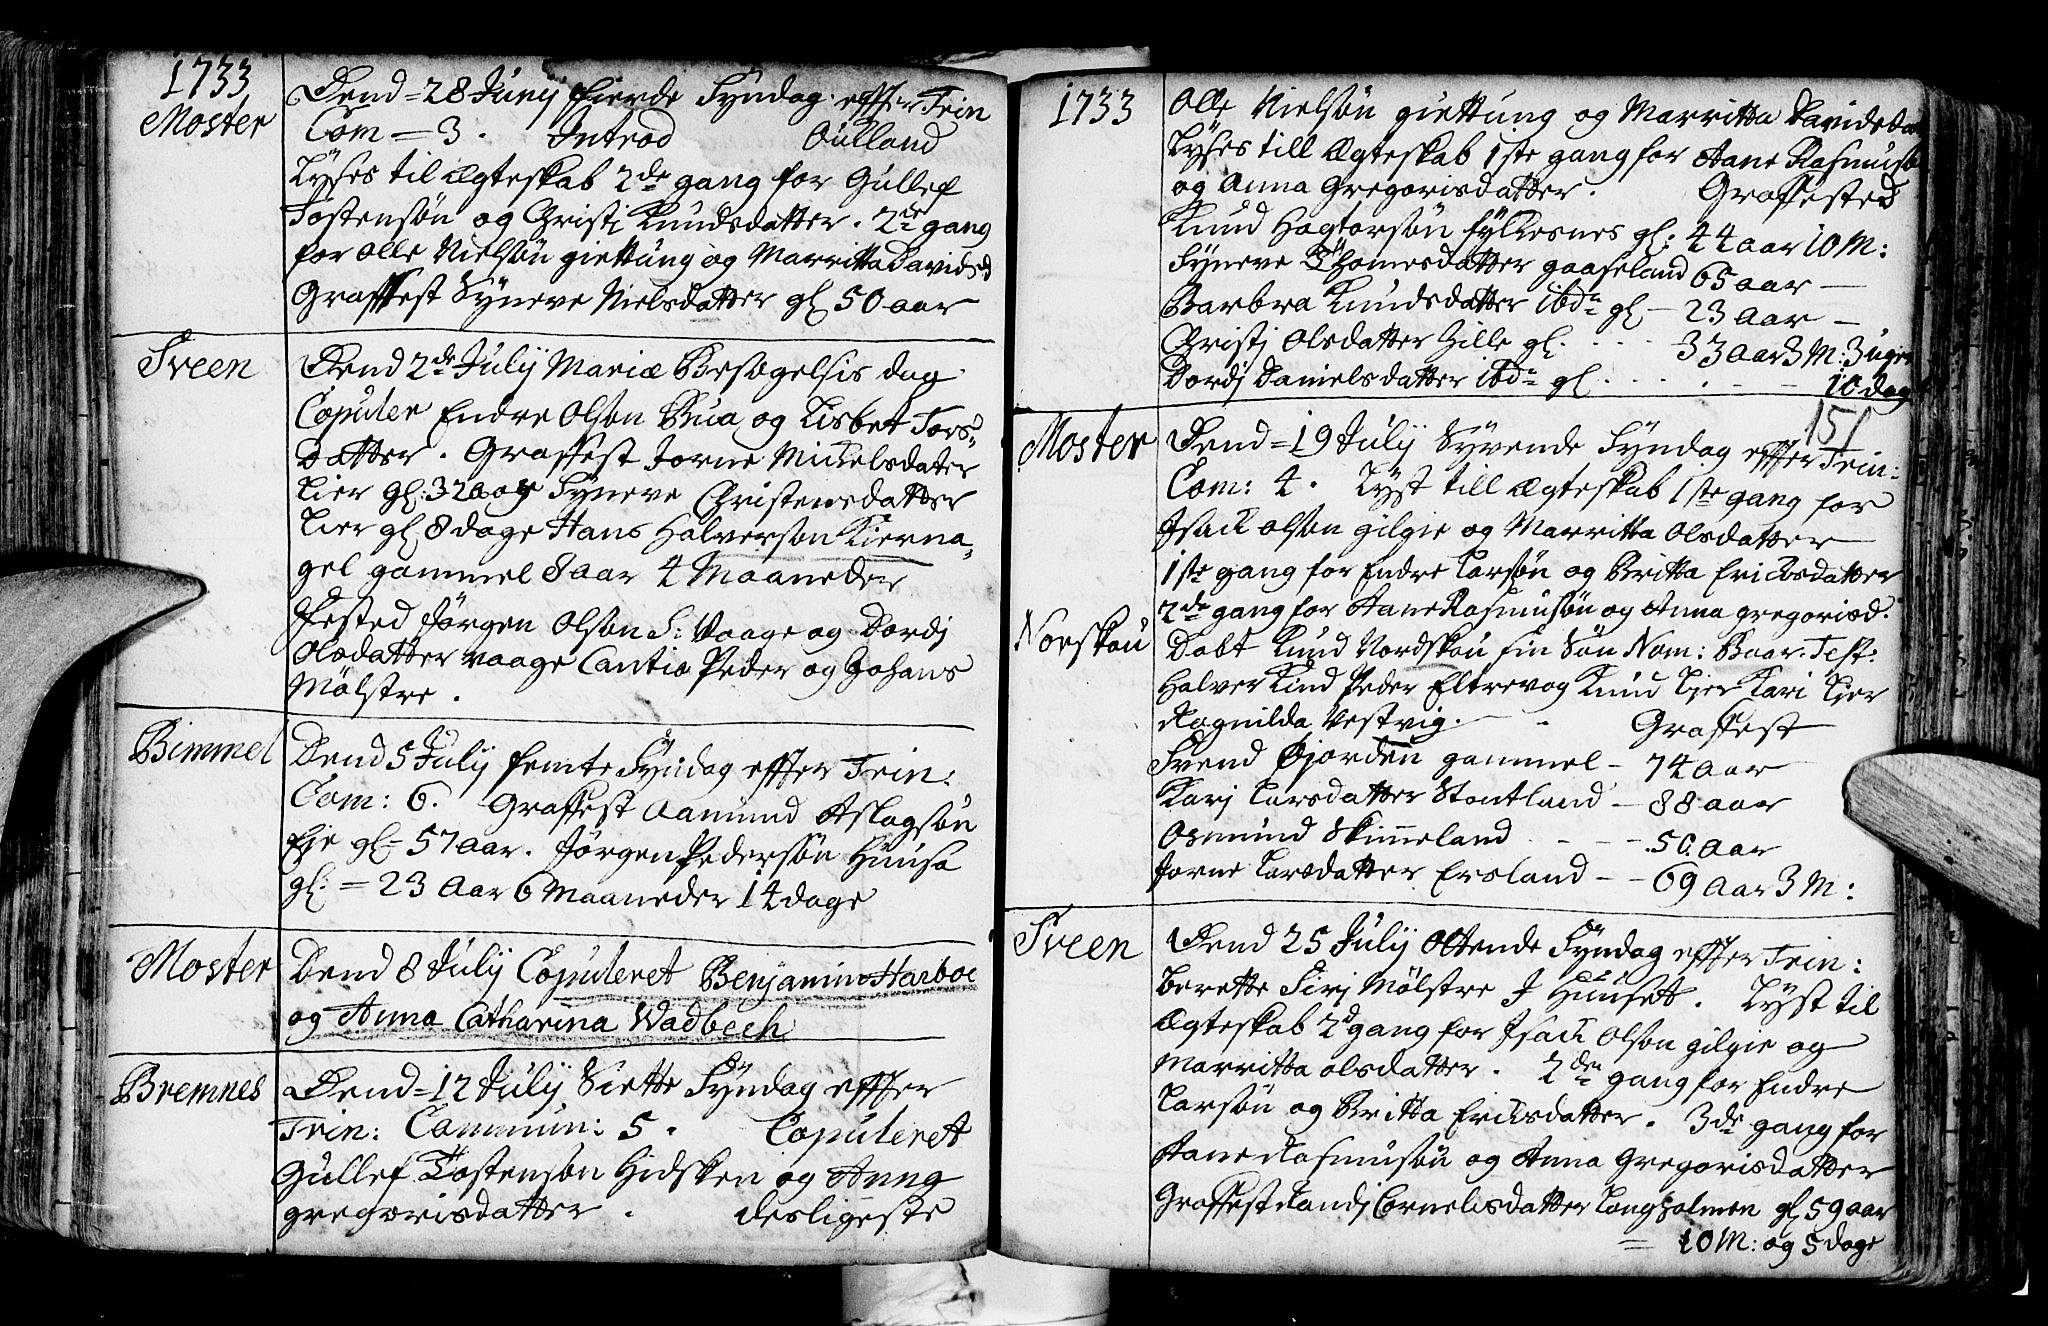 1733
Moster
Dend = 28 Junij fierde Syndag effter Trin
Com = 3. Introd Aulland
Lyses til Ægteskab 2de gang for Gullef
Tostensøn og Christi Knudsdatter. 2de gang
for Olle Nielsøn giettung og Marritta Davidsd
Graffest Syneve Nielsdatter gl 50 aar
Sveen
Dend 2de Julij Mariæ Besøgelsis dag
Copuler Endre Olson Bua og Lisbet Tors-
datter. Graffest Jorne Mickelsdater
Lier gl: 32 aar Syneve Christensdatter
Lier gl 8 dage Hans Halverson Kierna-
gel gammel 8 aar 4 Maaneder
Fested Jørgen Olson S: Vaage og Dordj
Olsdatter vaage Cantio Peder og Johans
Mølstre.
Bimmel
Dend 5 Julij femte Syndag effter Trin:
Com: 6. Graffest Aamund Aslagsøn
Eje gl = 57 aar. Jørgen Pedersøn Huusa
gl: = 23 Aar 6 Maaneder 14 dage
Moster
Dend 8 Julij Copuleret Benjamin Harboe
og Anna Catharina Wadbech
Bremnes
Dend = 12 Julij Siette Syndag effter
Trin: Commun: 5. Copuleret
Gullef Tostenson Hidsken og Anng
gregorisdatter. desligeste
1733
Olle Nielsøn giettung og Marritta Davidsdat
Lyses till Ægteskab 1ste gang for Aane Rasmuss
og Anna Gregorisdatter. Graffested
Knud Hagtorsøn fylkesnes gl: 44 aar 10 M:
Syneve Thomesdatter gaaseland 65 aar —
Barbra Knudsdatter ibdn gl — 23 Aar —
Christj Olsdatter Hille gl. . . . 33 Aar 3 M: 3 uger
Dordj Danielsdatter ibdn gl. . . . — — 10 dag
151
Moster
Dend = 19 Julij Syvende Syndag effter Trin:
Com: 4. Lyst till Ægteskab 1ste gang for
Isack olson gilgie og Marritta Olsdatter
1ste gang for Endre Larsøn og Britta Ericksdatter
2de gang for Aane Rasmusøn og Anna gregorisd.
Norskou
Døbt Knud Nordskou sin Søn Nom: Baar. Test:
Halver Kind Peder Eltrevog Knud Lier Kari Lier
Ragnilda Vestvig. — Graffest
Svend Gjorden gammel — 74 aar
Karj Larsdatter Stontland — 88 aar
Osmund Skimmeland — — 50. Aar
Jorne Larsdatter Ersland — — 69 Aar 3 M:
Sveen
Dend 25 Julij Ottende Syndag effter Trin:
berette Sirj Mølstre I Huuset. Lyst til
Ægteskab 2d gang for Isack Olson gilgie og
Marritta olsdatter. 2den gang for Endre
Larsøn og Britta Ericksdatter. 3de gang for
Aane Rasmusøn og Anna Gregorisdatter
Graffest Randj Cornelisdatter Langholmen gl 59 aar
= 10 M: og 5 dage